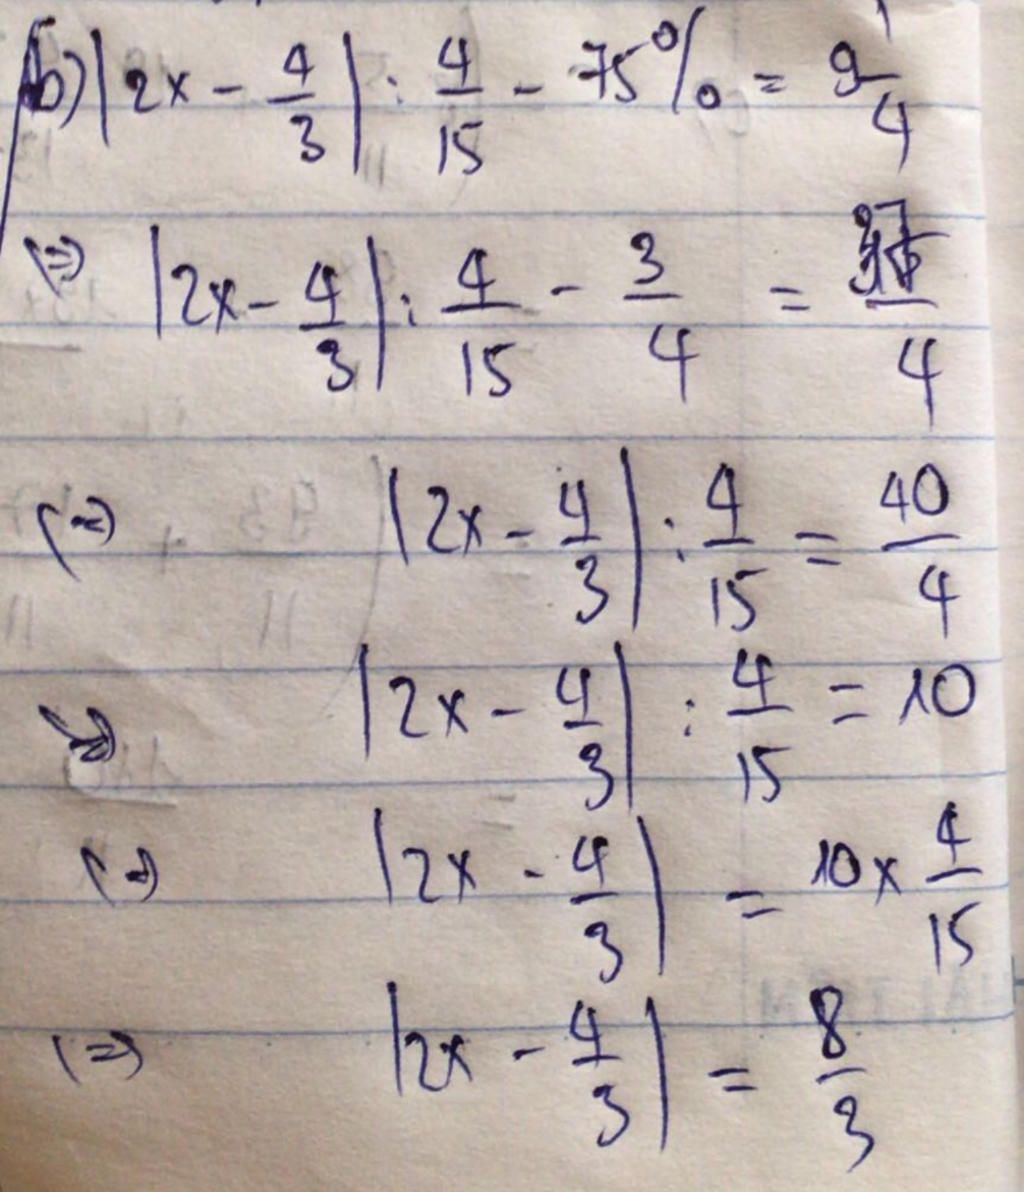 b) |2x - 4/3| : 4/15 - 75% = 9 1/4
(=) |2x - 4/3| : 4/15 - 3/4 = 37/4
(=) |2x - 4/3| : 4/15 = 40/4
(=) |2x - 4/3| : 4/15 = 10
(=) |2x - 4/3| = 10 x 4/15
(=) |2x - 4/3| = 8/3